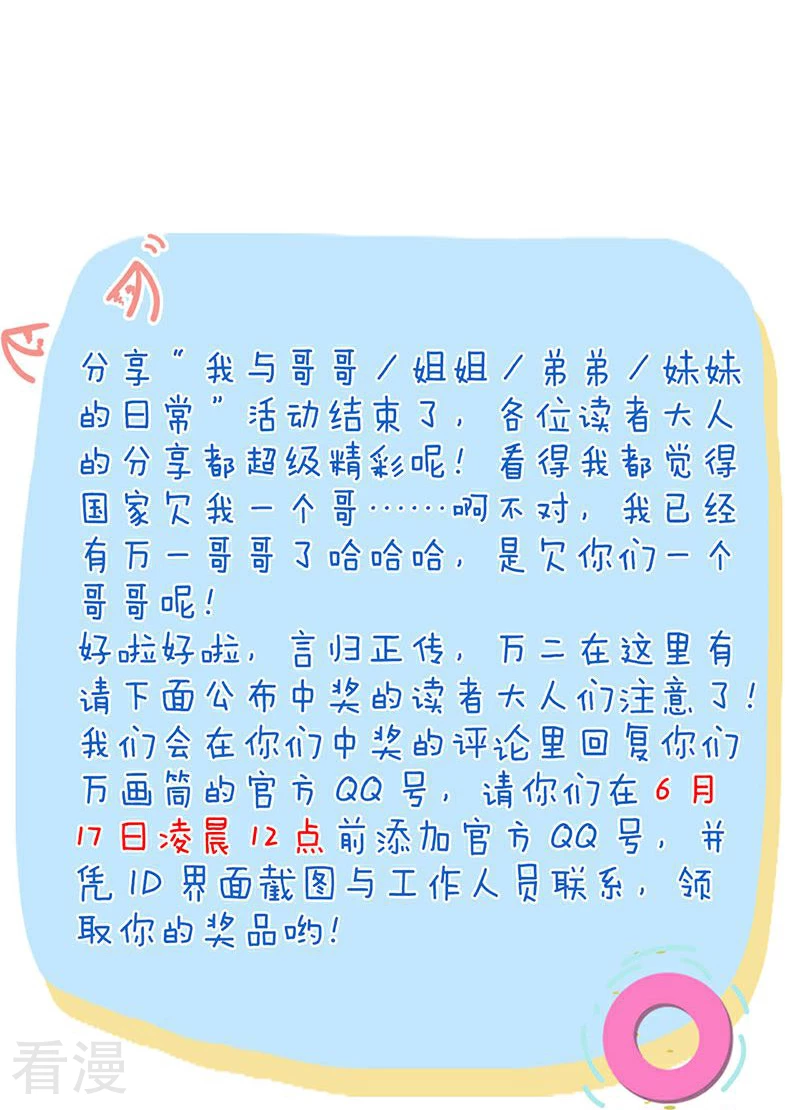 分享“我与哥哥/姐姐/弟弟/妹妹
的日常”活动结束了，各位读者大人
的分享都超级精彩呢！看得我都觉得
国家欠我一个哥……啊不对，我已经
有万一哥哥了哈哈哈，是欠你们一个
哥哥呢！
好啦好啦，言归正传，万二在这里有
请下面公布中奖的读者大人们注意了！
我们会在你们中奖的评论里回复你们
万画筒的官方QQ号，请你们在6月
17日凌晨12点前添加官方QQ号，并
凭ID界面截图与工作人员联系，领
取你的奖品哟！
看漫